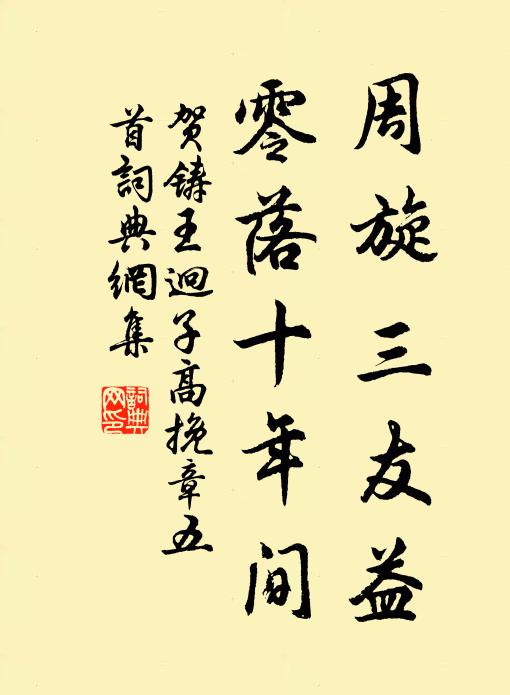 周旋三友益
零落十年間
賀鑄王迥子高挽章五
首詞典網集
詞典
网印